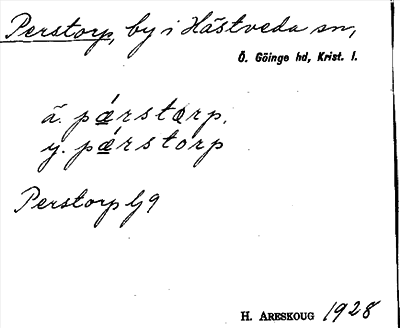 Perstorp, by i Hästveda sn,
Ö. Göinge hd, Krist. l.
ä. pǽrstorp,
y. pǽrstorp
Perstorp G9
H. ARESKOUG 1928